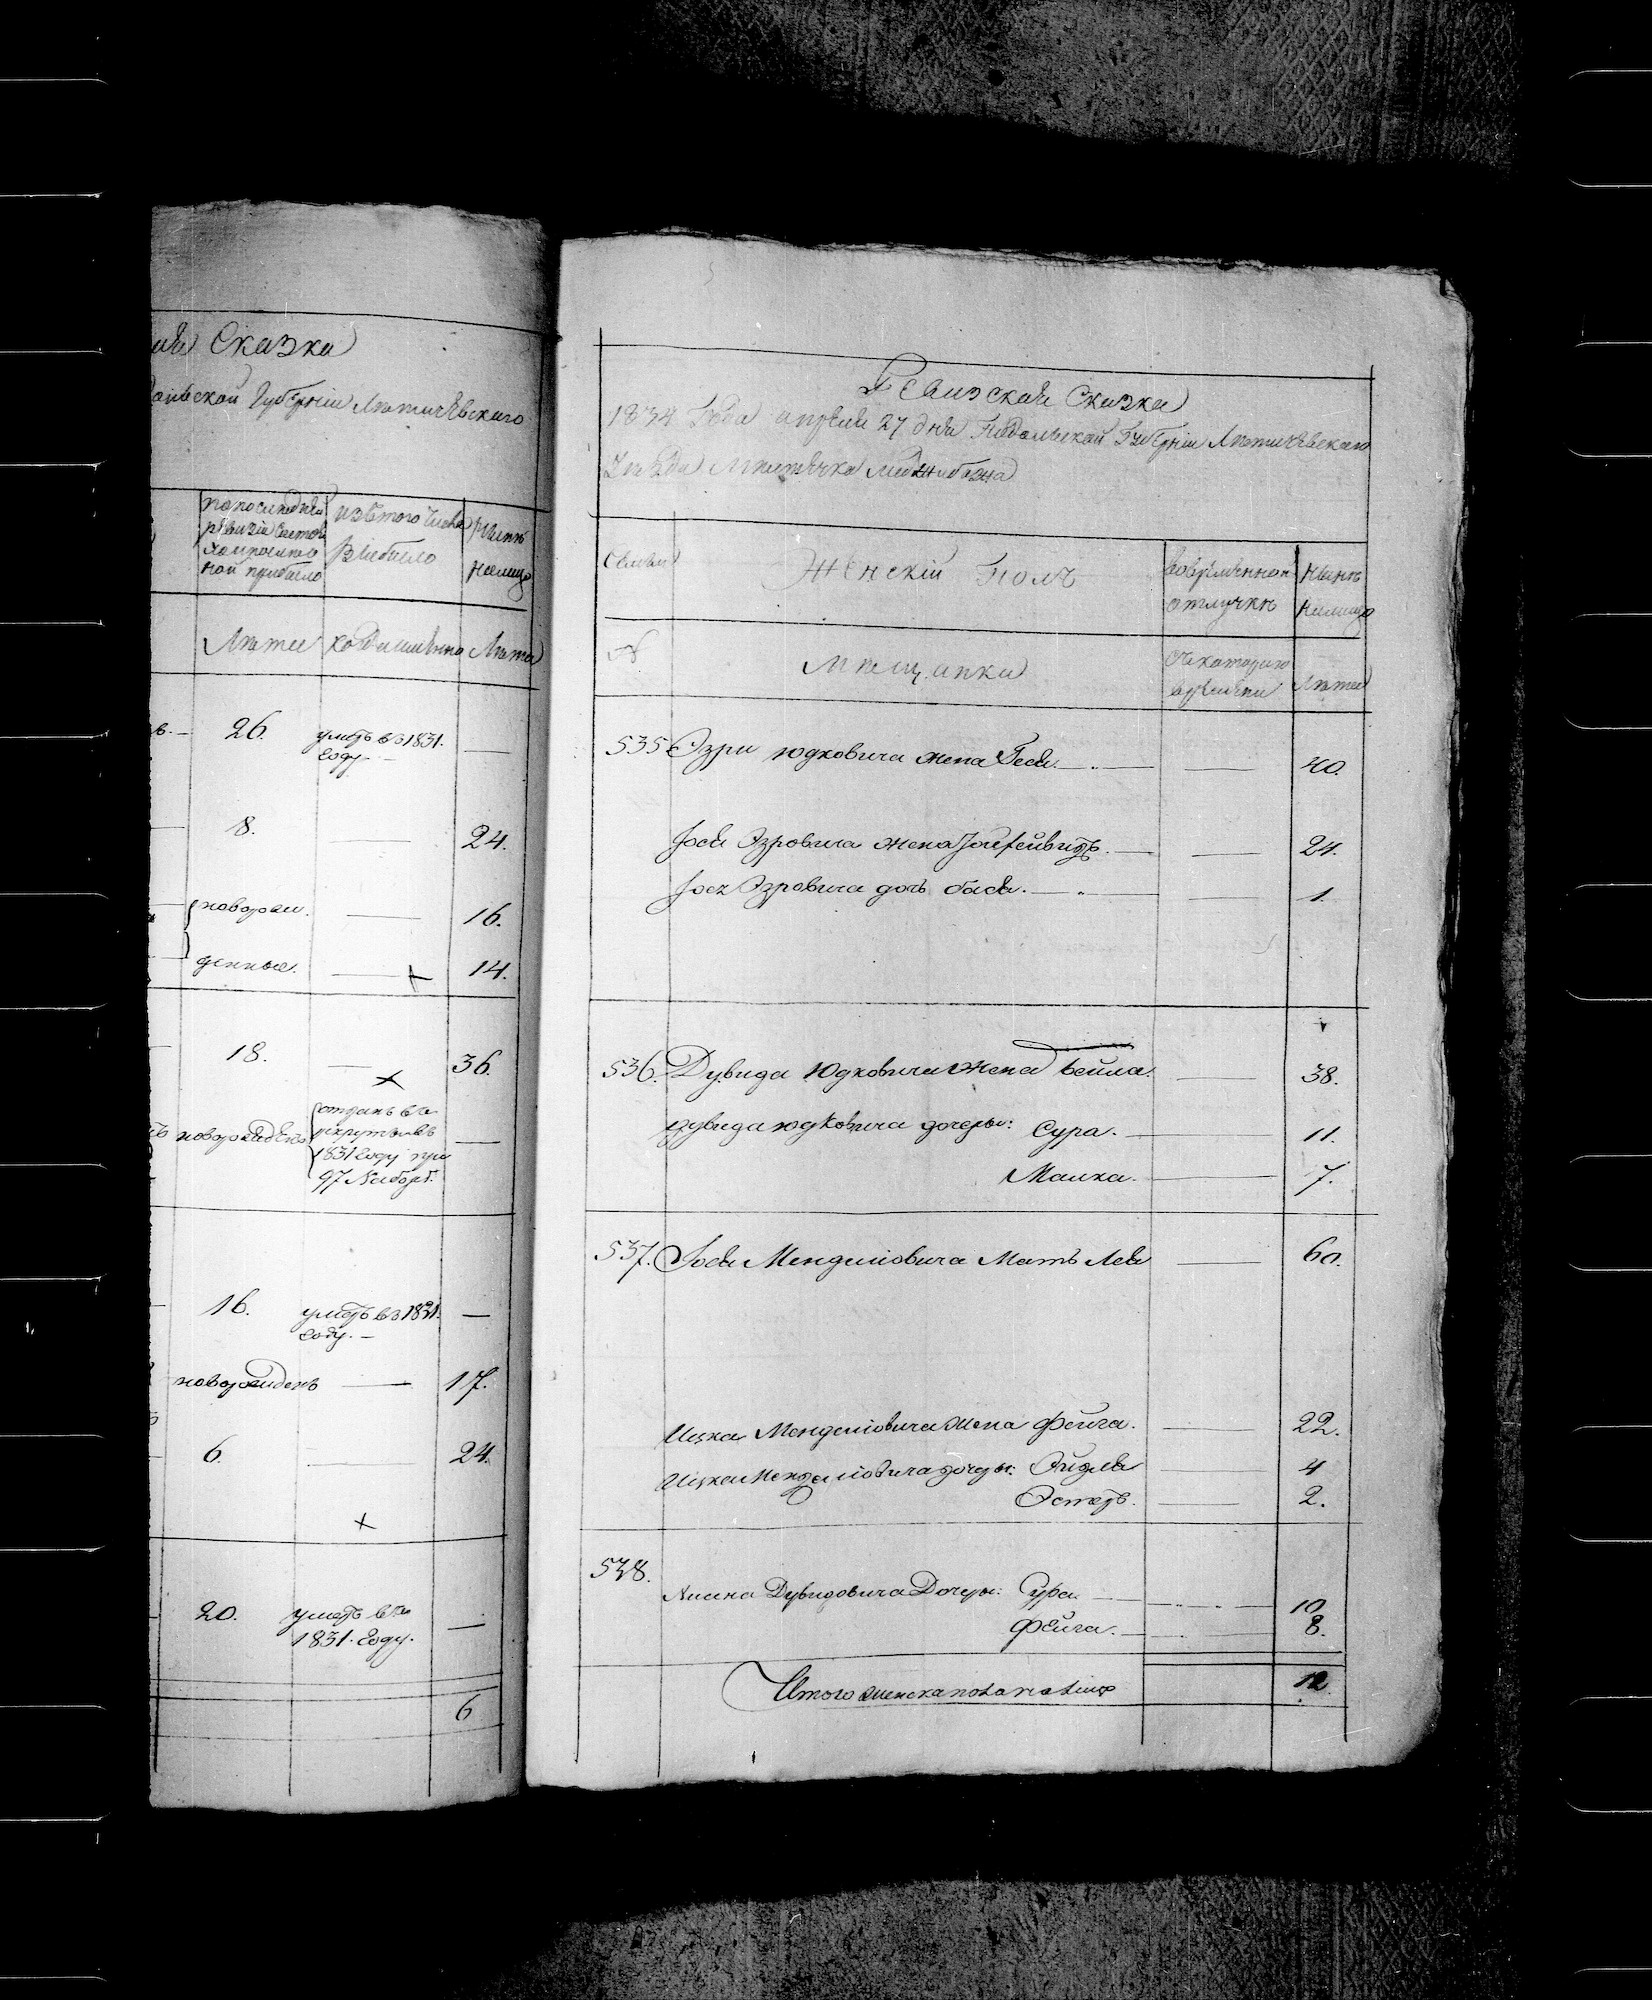 Сказка
Губерніи Лѣтичевскаго
по последней
ревизіи состо
яло и после
ной прибыло
изѣтого числа
Выбыло
Нынѣ
налицо
Лѣта
когда именно
Лѣта
26.
умеръ въ 1831.
году.
8.
24.
новорож.
16.
денные.
14.
18.
36.
новорожденъ
отданъ въ
рекруты въ
1831 году при
97 Наборѣ.
16.
умеръ въ 1831.
году.
новорожденъ
17.
6.
24.
20.
умеръ въ
1831. году.
6
Ревизская Сказка
1834 Года апреля 27 дня Подольской Губерніи Лѣтичевскаго
Уѣзда Мѣстечка Меджибожа
Семьи
Женскій Полъ
вовременной
отлучкѣ
Нынѣ
налицо
№
Мѣщанка
съкотораго
времени
Лѣта
535 Юдковича жена 40.
Эзровича жена 24.
Эзровича дочь бася. 1.
536. Дувида Юдковича Жена бейла. 38.
Дувида Юдковича дочеры: Сура. 11.
Малка. 7.
537. Менделіовича Мать Лея 60.
Ицка Менделіовича Жена Фейга. 22.
Ицка Менделіовича дочеры: 4
Эстеръ. 2.
538.
Дувидовича Дочеры: Сура 10
Фейга. 8.
Итого женска пола налицо 12